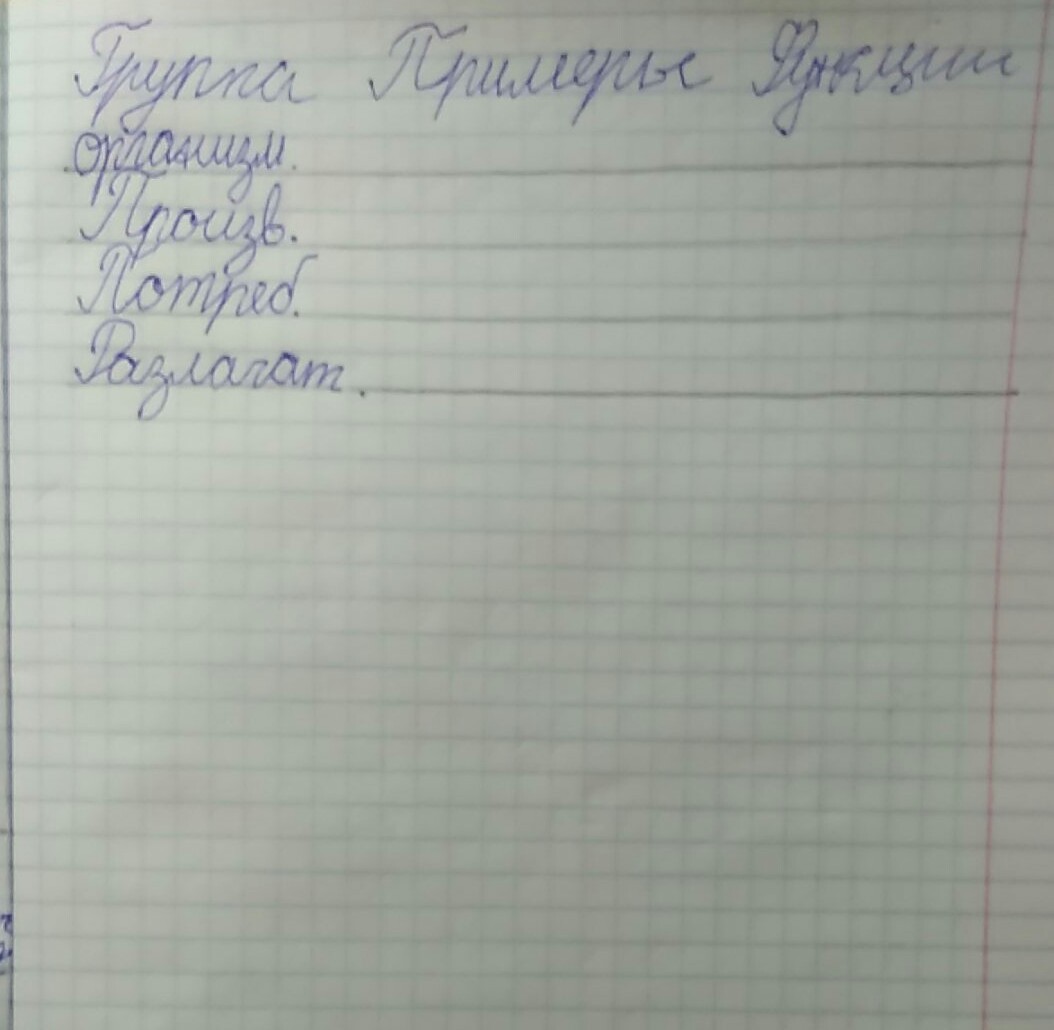 Группа Примеры Функции
организм.
Произв.
Потреб.
Разлагат.